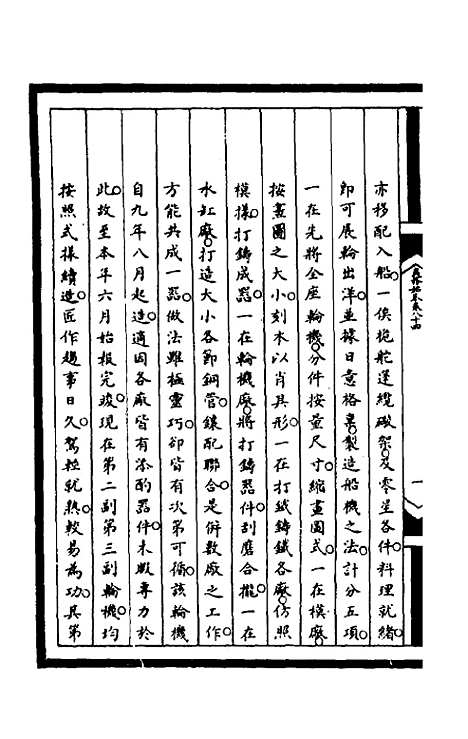 亦移配入船。一俟桅舵蓬纜碇架。及零星各件料理就緒。
即可展輪出洋。並據日意格稟。製造船機之法。計分五項。
一在先將全座輪機。分件按量尺寸。縮畫圖式。一在模廠。
按畫圖之大小。刻木以肖其形。一在打鐵鑄鐵各廠。仿照
模樣。打鑄成器。一在輪機廠。將打鑄器件。刮磨合攏。一在
水缸廠。打造大小各節銅管。鑲配聯合。是併數廠之工作。
方能共成一器。做法雖極靈巧。卻皆有次第可循。該輪機
自九年八月起造。適因各廠皆有添酌器件。未敢專力於
此。故至本年六月始報完竣。現在第二副第三副輪機。均
按照式樣續造。匠作趨事日久。駕輕就熟。較易為功。其第
卷八十四
一